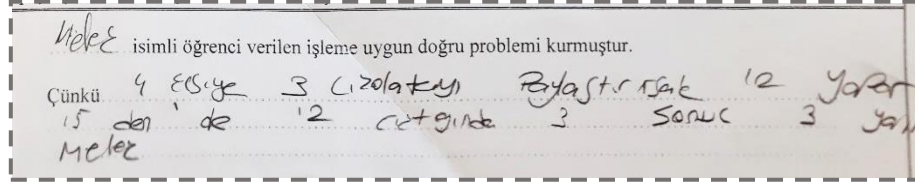 Melek isimli öğrenci verilen işleme uygun doğru problemi kurmuştur.
Çünkü 4 kişiye 3 çizolatayı Paylaştırırsak 12 yapar
15 den de 12 çıktığında 3 sonuc 3 ya
Melek